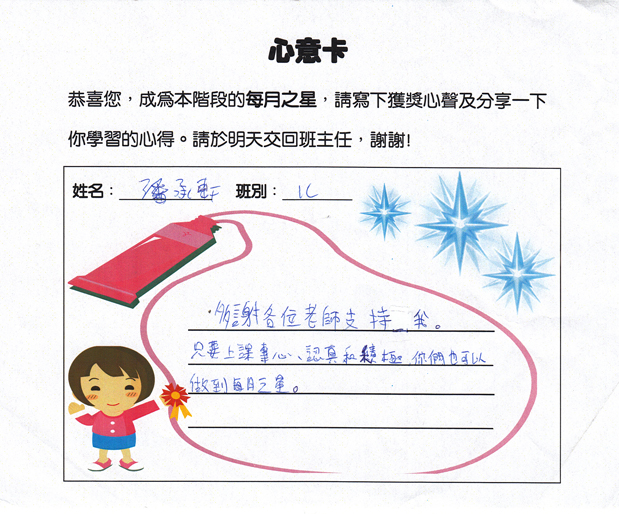 心意卡
恭喜您，成為本階段的每月之星，請寫下獲獎心聲及分享一下
你學習的心得。請於明天交回班主任，謝謝!
姓名： 潘承軒 班別： 1C
多謝各位老師支持我。
只要上課專心、認真和積極 你們也可以
做到每月之星。